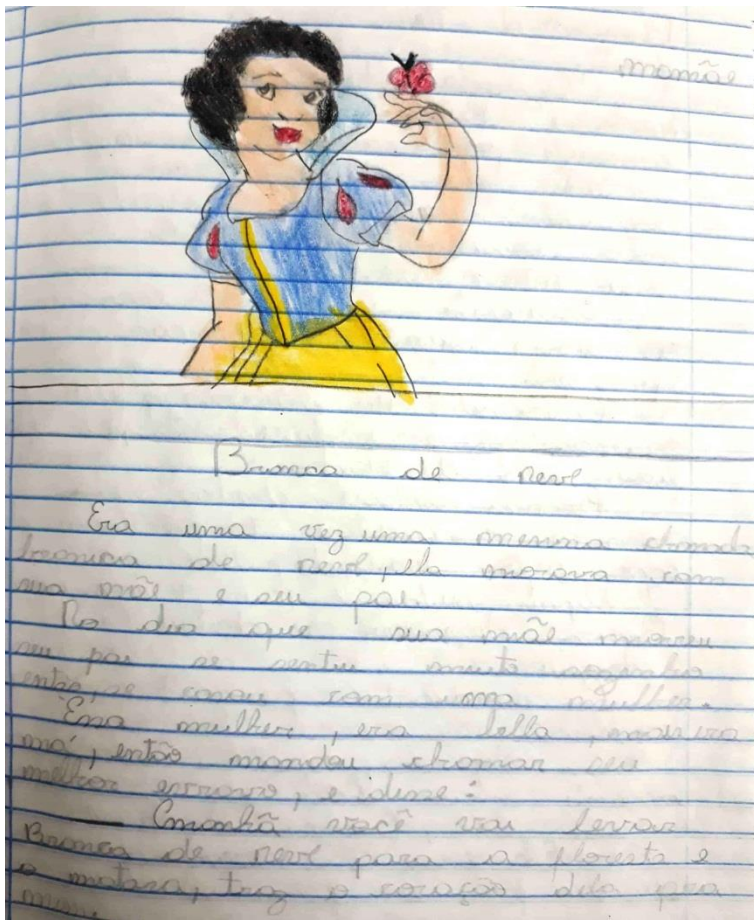 mamãe
Branca de neve
Era uma vez uma menina chamada
branca de neve, ela morava com
sua mãe e seu pai.
No dia que sua mãe morreu
seu pai se sentiu muito sozinho
então, se casou com uma mulher.
Essa mulher, era bella, mais era
má, então mandou chamar seu
melhor escravo, e disse:
— Amanhã você vai levar
Branca de neve para a floresta e
a matara, traz o coração dela pra
mim.